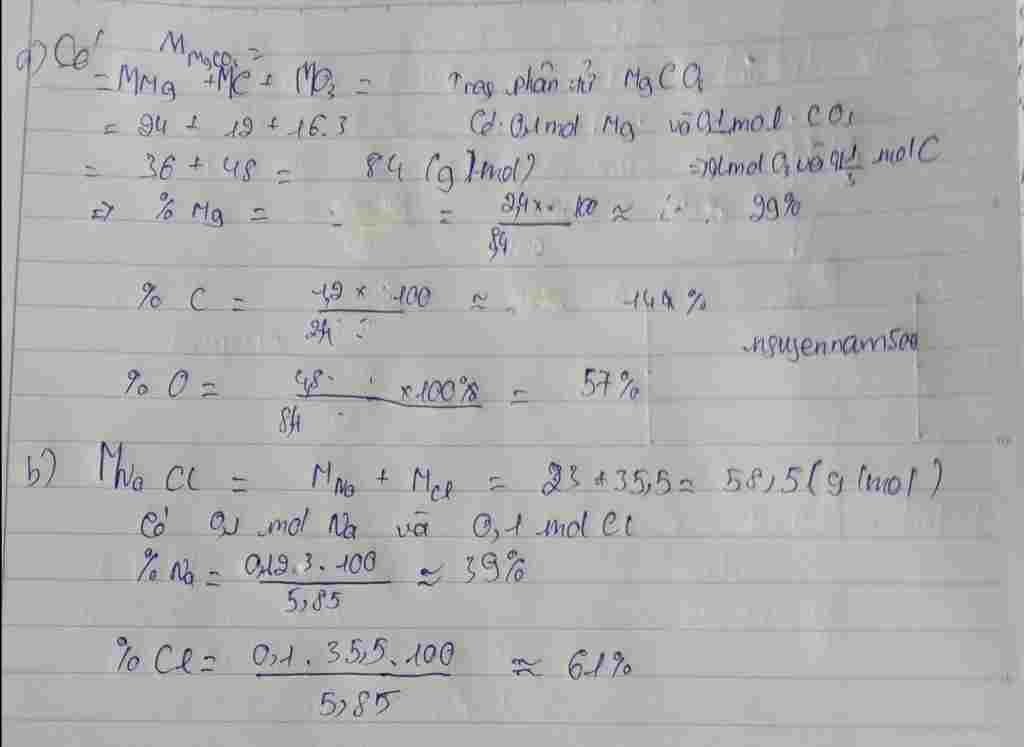 a) Có M MgCO3 =
= MMg + MC + MO3 = Trong phân tử MgCO3
= 24 + 12 + 16.3 Có 0,1 mol Mg và 0,1 mol CO3
= 36 + 48 = 84 (g/mol) mol O, và mol C
=> % Mg = = 24 x 100 / 84 ≈ 29%
% C = 12 x 100 / 84 ≈ 14 %
nguyennam500
% O = 48 x 100% / 84 = 57%
b) MNaCl = MNa + MCl = 23 + 35,5 = 58,5 (g/mol)
Có 0,1 mol Na và 0,1 mol Cl
% Na = 0,12.3.100 / 5,85 ≈ 39%
% Cl = 0,1.35,5.100 / 5,85 ≈ 61%